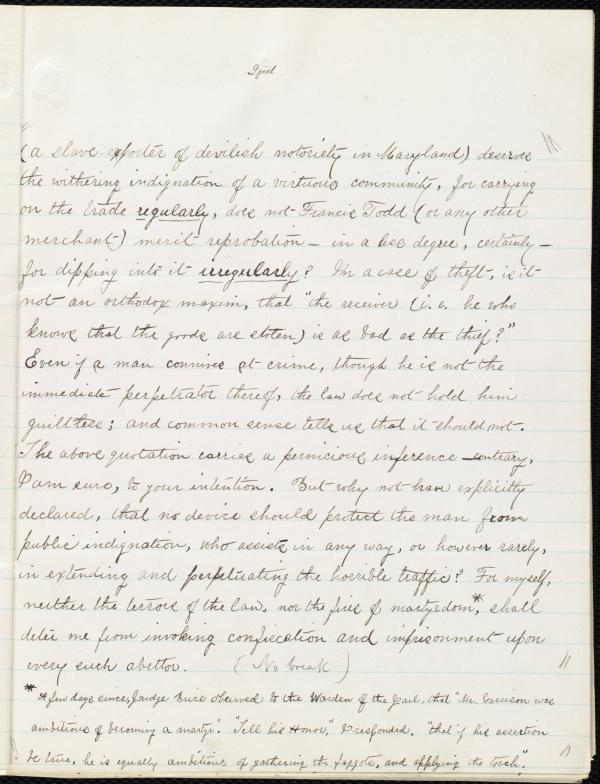 (a slave-exporter of devilish notoriety in Maryland) deserves
the withering indignation of a virtuous community, for carrying
on the trade regularly, does not Francis Todd (or any other
merchant) merit reprobation — in a less degree, certainly —
for dipping into it irregularly? In a case of theft, is it
not an orthodox maxim, that "the receiver (i. e. he who
knows that the goods are stolen) is as bad as the thief?"
Even if a man connives at crime, though he is not the
immediate perpetrator thereof, the law does not hold him
guiltless; and common sense tells us that it should not.
The above quotation carries a pernicious inference — contrary,
I am sure, to your intention. But why not have explicitly
declared, that no device should protect the man from
public indignation, who assists in any way, or however rarely,
in extending and perpetuating the horrible traffic? For myself,
neither the terrors of the law, nor the fires of martyrdom,* shall
deter me from invoking confiscation and imprisonment upon
every such abettor. (No break)
* A few days since, Judge Brice observed to the Warden of the Jail, that "Mr. Garrison was
ambitious of becoming a martyr". "Tell his Honor," I responded, "that if his assertion
be true, he is equally ambitious of gathering the faggots, and applying the torch".